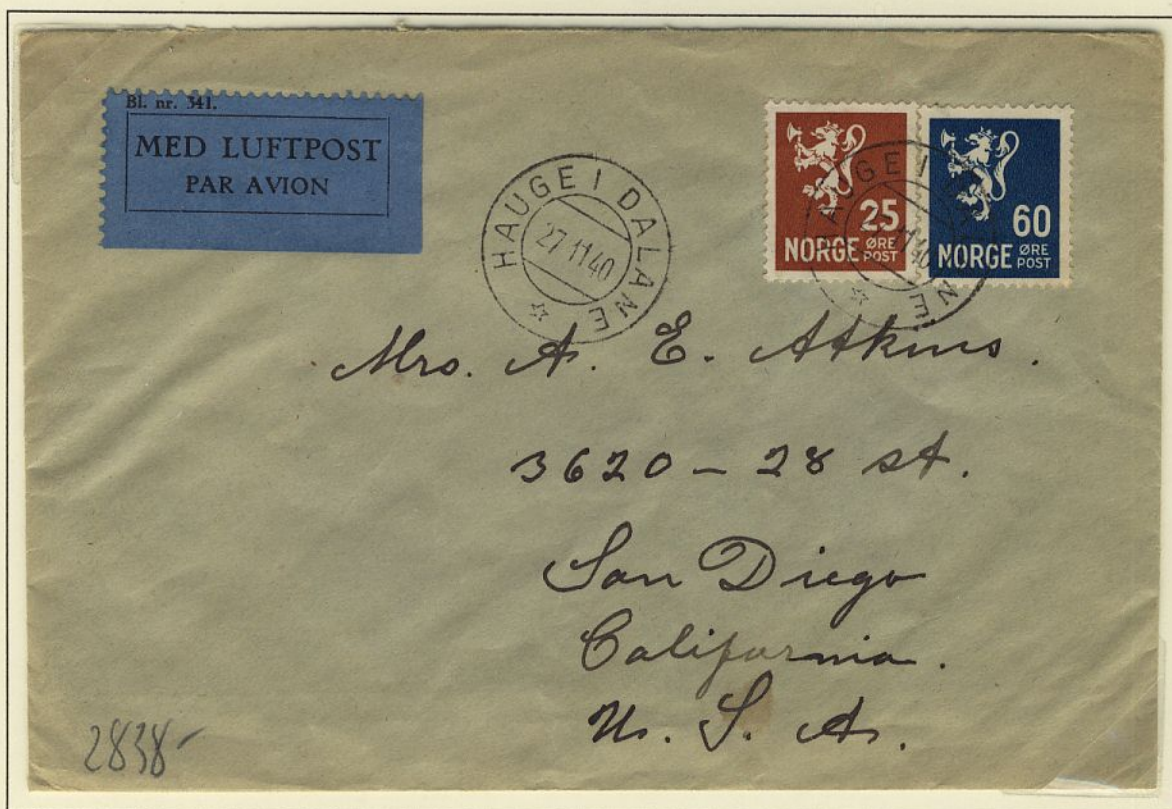 Bl. nr. 341.
MED LUFTPOST
PAR AVION
HAUGE I DALANE
27 11 40
25
NORGE ØRE POST
60
NORGE ØRE POST
HAUGE I
NE
11 40
Mrs. A. E. Atkins.
3620 - 28 st.
San Diego
California.
U. S. A.
2838-